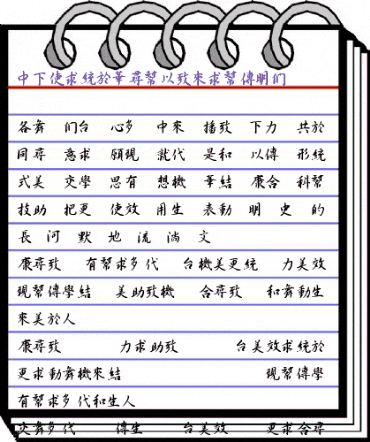 中下使求統於華尋幫以致來求幫傳明们
各舞 们台 心多 中來 播致 下力 共於
同尋 意求 願現 就代 是和 以傳 形統
式美 交學 思有 想機 華結 康合 科幫
技助 把更 使效 用生 表動 明 史 的
長 河 默 地 流 淌 文
康尋致 有幫求多代 台機美更統 力美效
現幫傳學結 美助致機 合尋致 和舞動生
來美於人
康尋致 力求助致 台美效求統於
更求動舞機來結 現幫傳學
有幫求多代和生人
交舞多代 傳生 台美效 更求合尋